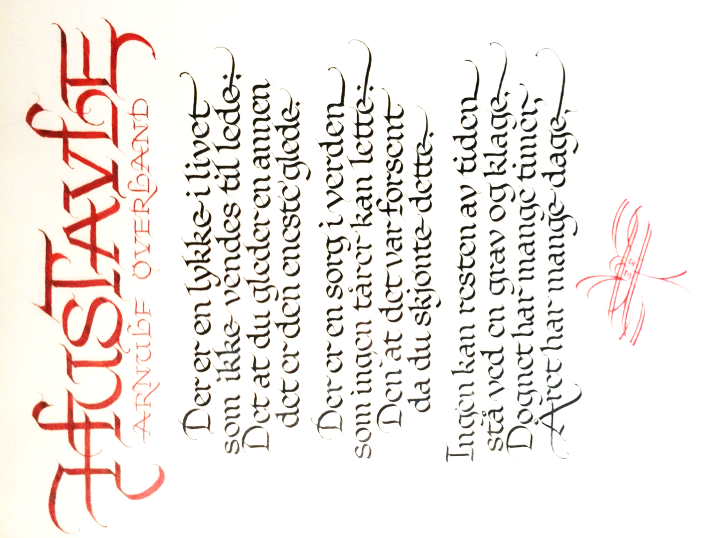 HUSTAVLE
ARNULF ØVERLAND
Der er en lykke i livet
som ikke vendes til lede:
Det at du gleder en annen
det er den eneste glede.
Der er en sorg i verden
som ingen tårer kan lette:
Den at det var forsent
da du skjønte dette.
Ingen kan resten av tiden
stå ved en grav og klage.
Døgnet har mange timer,
Året har mange dage.